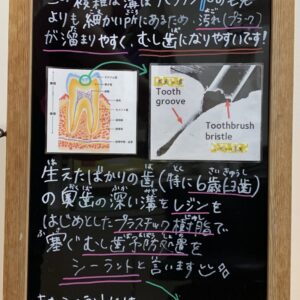 この複雑な溝はハブラシの毛先
よりも細かい所にあるため、汚れ(プラーク)
が溜まりやすく、むし歯になりやすいです!
Tooth
groove
Toothbrush
bristle
生えたばかりの歯(特に6歳臼歯)
の奥歯の深い溝をレジンを
はじめとしたプラスチック樹脂で
塞ぐむし歯予防処置を
シーラントと言います